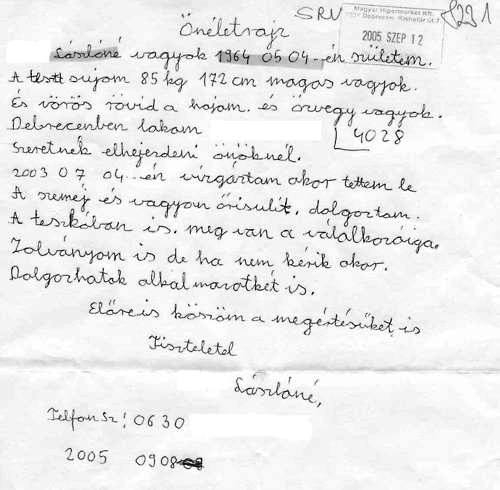 Önéletrajz
SRV
Magyar Hipermarket Kft.
2005 SZEP 12
291
Lászlóné vagyok 1964 05 04..-én születem.
A testi sújom 85 kg 172 cm magas vagyok.
És vörös rövid a hajam. és özvegy vagyok.
Debrecenben lakam
4028
Szeretnék elhejezdeni önöknél.
2003 07 04..-én vizgáztam akor tettem le
A szemej és vagyon őrisulit. dolgoztam.
A teszkóban is. meg van a válalkozóiga.
Zolványom is de ha nem kérik akor.
Dolgozhatok alkalmazotként is.
Előre is köszöm a megértésüket is
Tisztelettel
Lászlóné,
Telfon Sz: 06 30
2005 0908